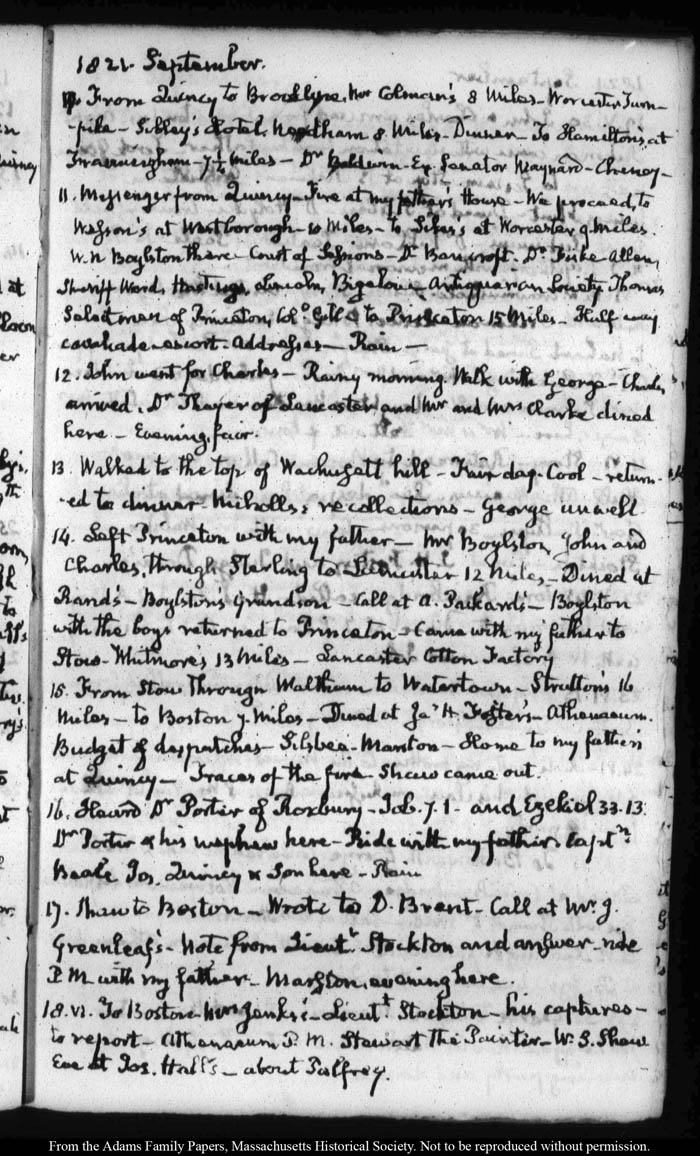 1821. September.
From Quincy to Brooklyne. Mr Colman's 8 Miles - Worcester Turn-
-pike - Sibley's Hotel. Needham 8 Miles - Dinner - To Hamilton's at
Framingham - 7½ Miles - Dr Baldwin - Ex. Senator Maynard - Cheney -
11. Messenger from Quincy - Fire at my father's House - We proceed, to
Wesson's at Westborough - 10 Miles - to Sikes's at Worcester 9 Miles.
W. N Boylston there - Court of Sessions - Dr Bancroft. Dr Fiske Allen,
Sheriff Ward, Hastings, Lincoln, Bigelow - Antiquarian Society Thomas
Selectmen of Princeton, Col. Gill - to Princeton 15 Miles - Half way
cavalcade escort - Addresses - Rain -
12. John went for Charles - Rainy morning. Walk with George - Charles
arrived. Dr Thayer of Lancaster and Mr and Mrs Clarke dined
here - Evening, fair.
13. Walked to the top of Wachusett hill - Fair day - Cool - return-
-ed to dinner - Nicholls's recollections - George unwell.
14. Left Princeton with my father - Mr Boylston, John and
Charles, through Sterling to Lancaster 12 Miles - Dined at
Rand's - Boylston's Grandson - Call at A. Packard's - Boylston
with the boys returned to Princeton - Came with my father to
Stow - Whitmore's 13 Miles - Lancaster Cotton Factory
15. From Stow through Waltham to Watertown - Stratton's 16
Miles - to Boston 7 Miles - Dined at Ja's H. Foster's - Athenaeum.
Budget of despatches - Silsbee - Marston - Home to my father's
at Quincy - Traces of the fire - Shaw came out.
16. Heard Dr Porter of Roxbury - Job. 7. 1 - and Ezekiel 33. 13.
Dr Porter & his nephew here - Ride with my father. Captn
Beale Jos. Quincy & Son here - Rain
17. Shaw to Boston - Wrote to D. Brent - Call at Mr. J.
Greenleaf's - Note from Lieut. Stockton and answer - ride
P.M. with my father - Marston, evening here.
18. VI. To Boston - Lieutt Stockton - his captures -
to report - Athenaeum P.M. Stewart the Painter - W. S. Shaw
Eve at Jos. Hall's - about Palfrey.
From the Adams Family Papers, Massachusetts Historical Society. Not to be reproduced without permission.